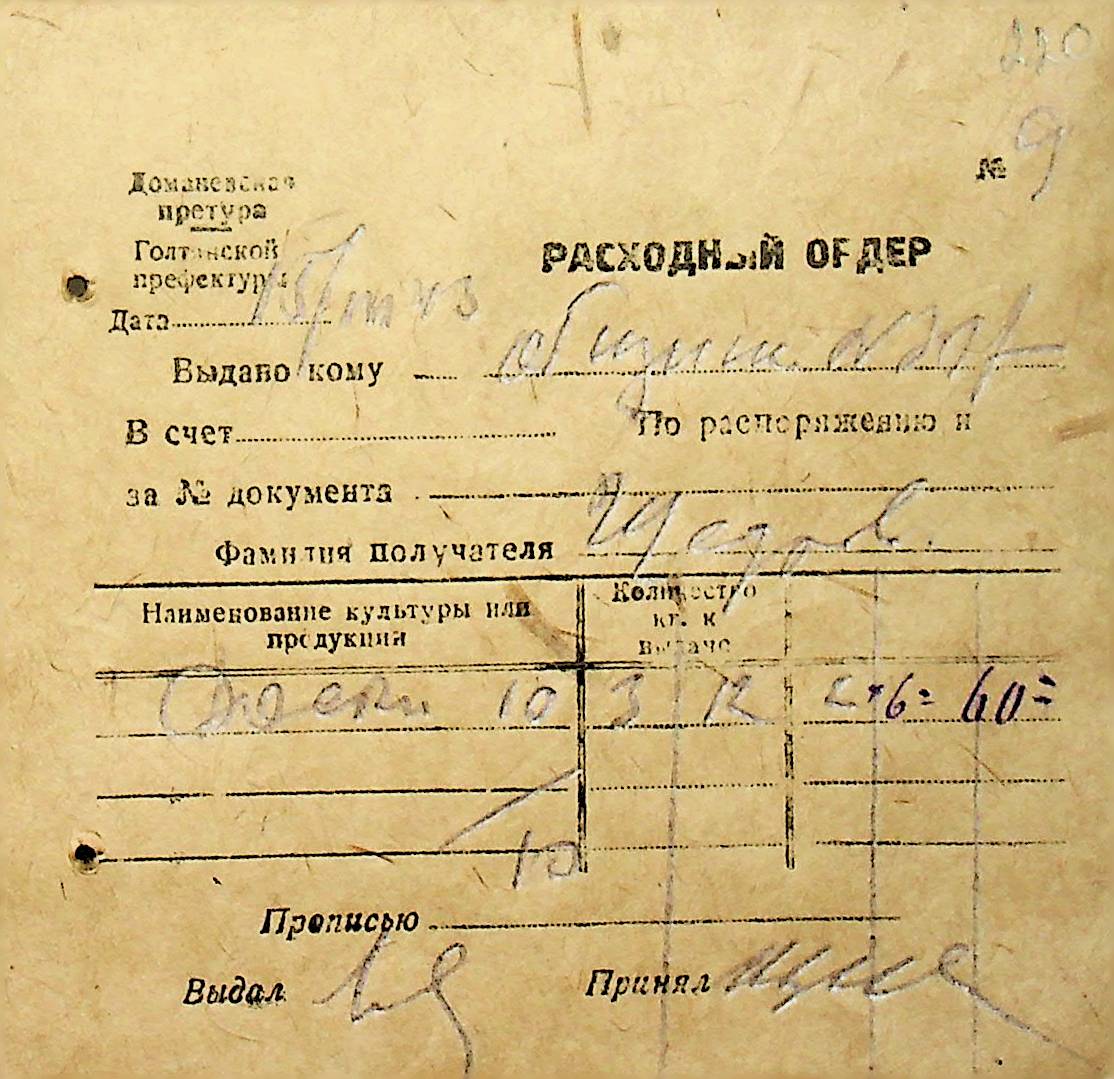 220
№ 9
Доманевская
претура
Голтянской
префектуры
РАСХОДНЫЙ ОРДЕР
Дата 15/III 43
Выдано кому
В счет По распоряжению и
за № документа
Фамилия получателя
Наименование культуры или продукции Количество кг. к выдаче
10 3 12 6= 60=
10
Прописью
Выдал Принял